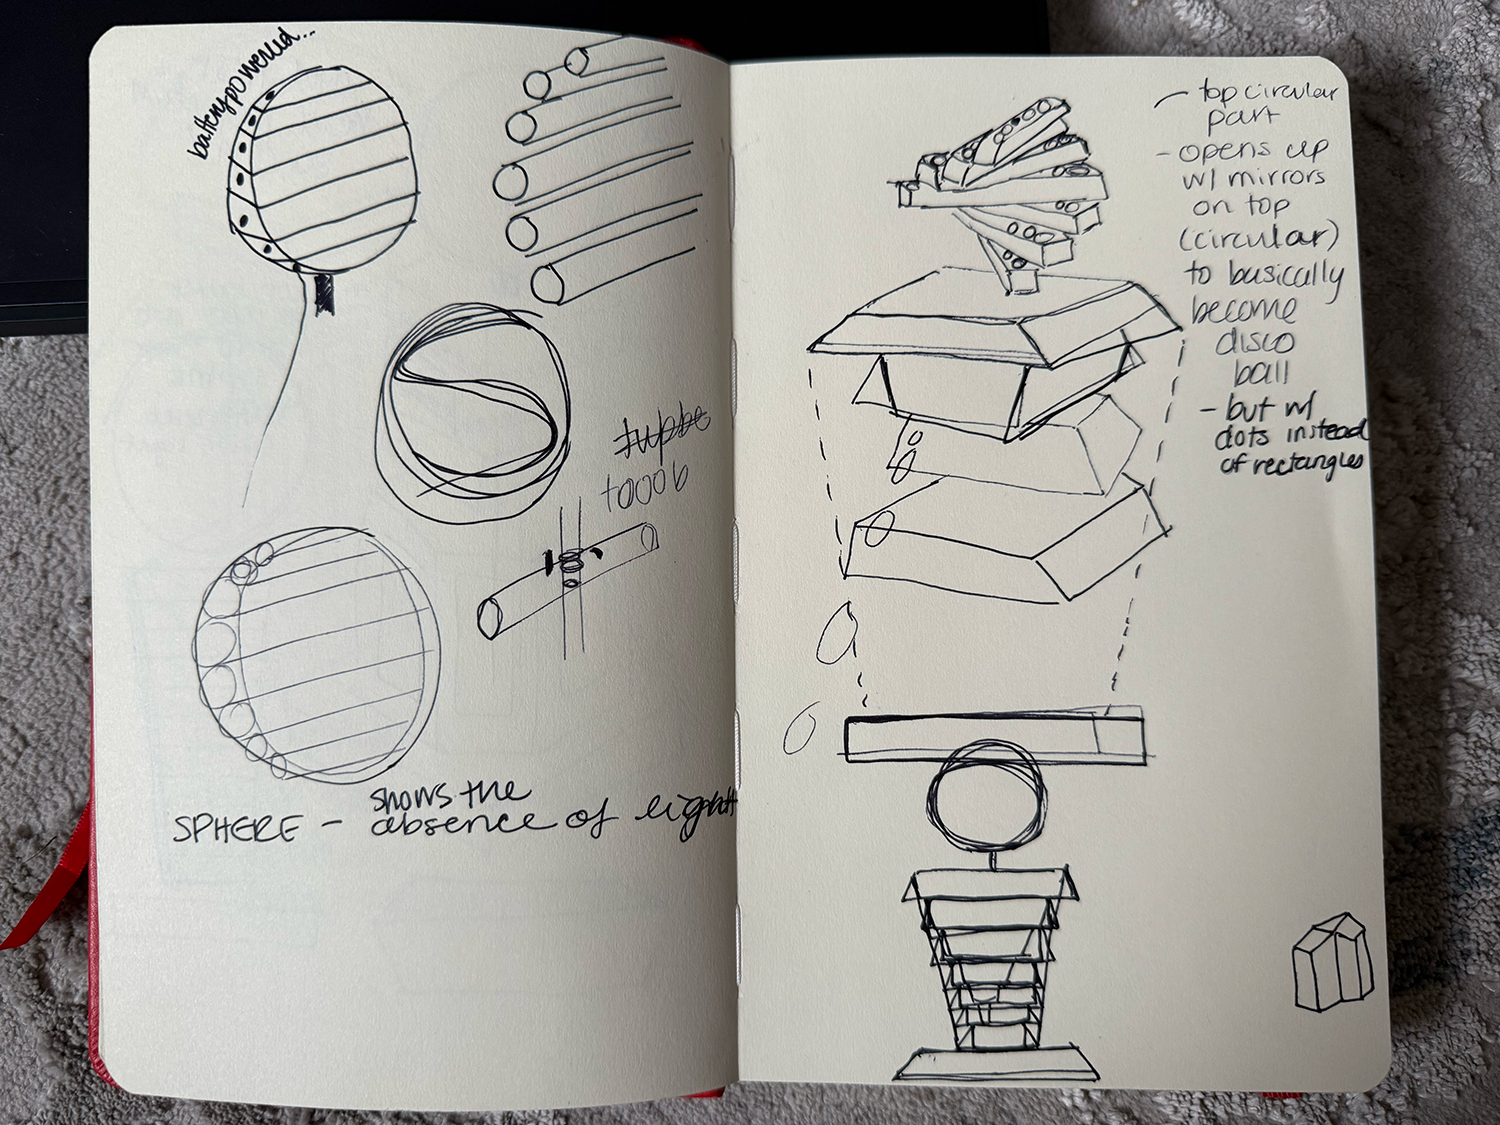 batterypowered...
tooob
SPHERE - shows the
absence of light
- top circular
part
- opens up
w/ mirrors
on top
(circular)
to basically
become
disco
ball
- but w/
dots instead
of rectangles